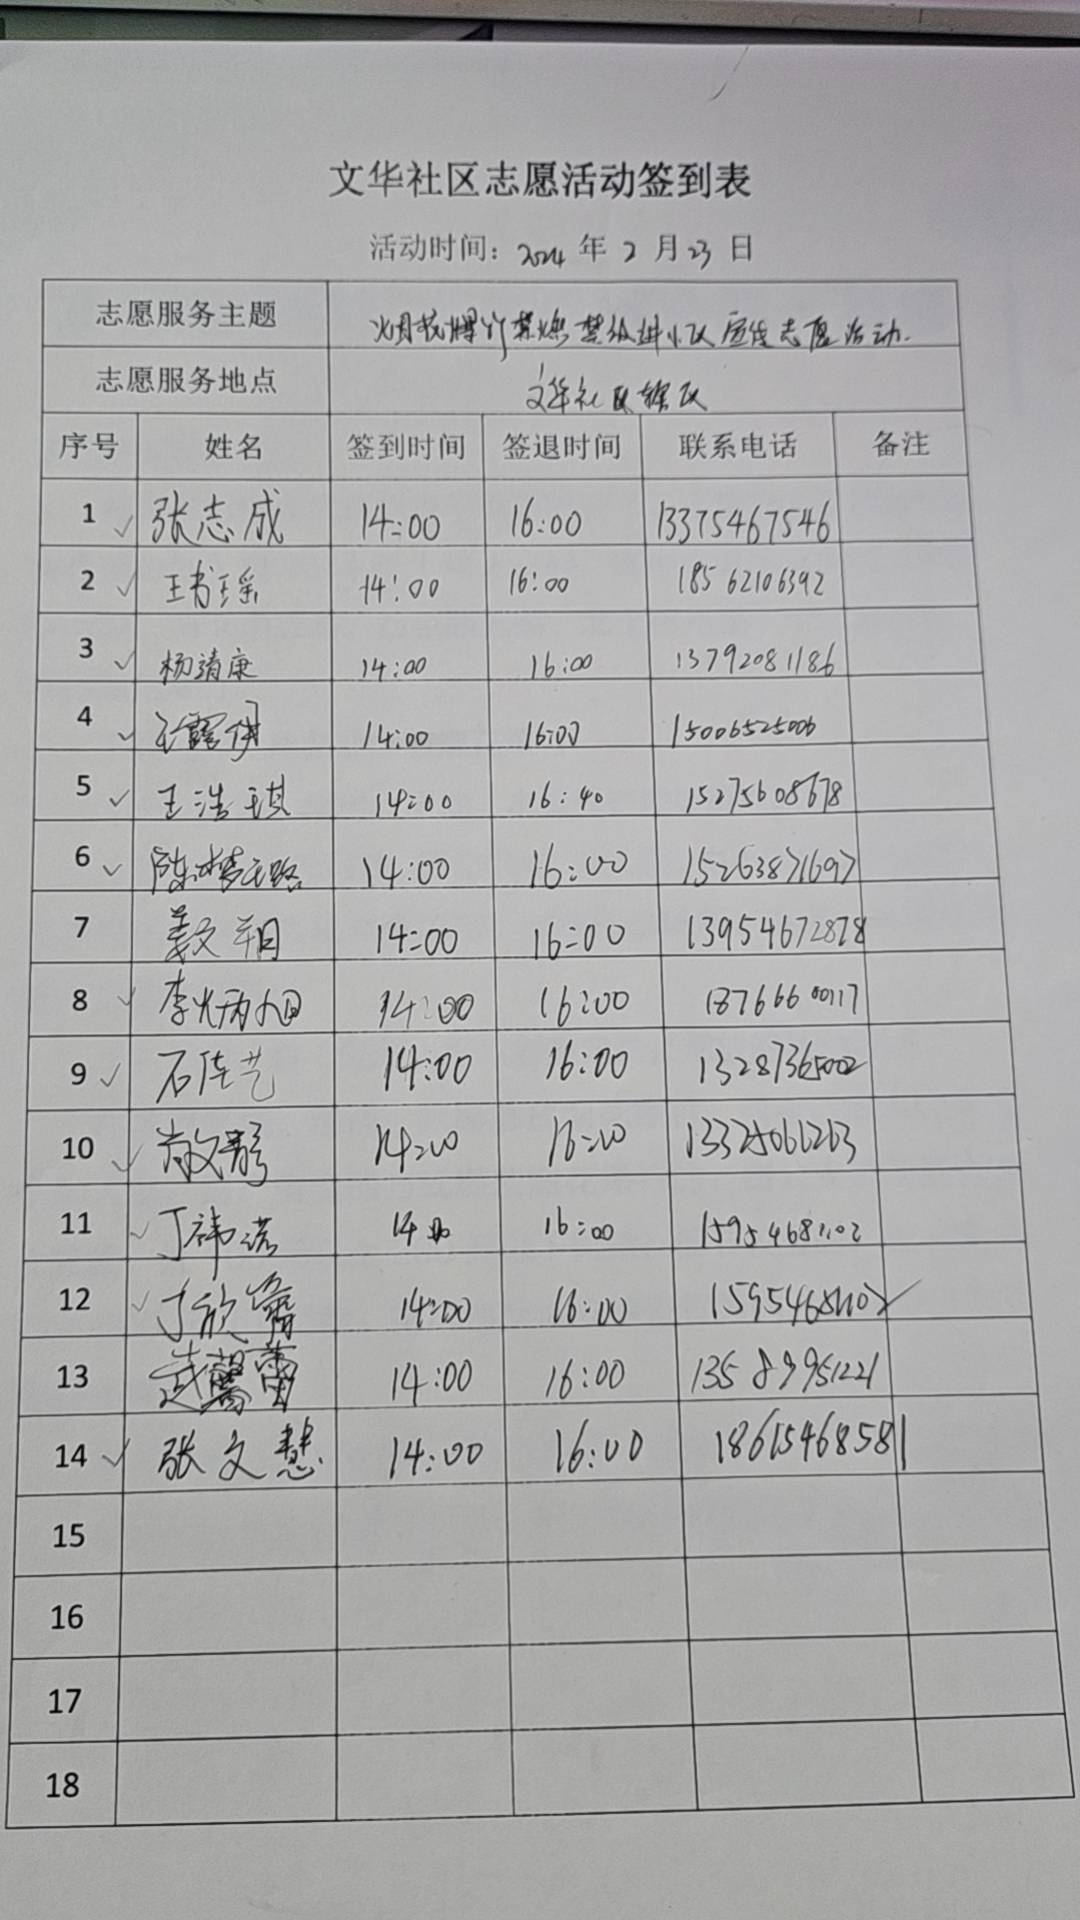 文华社区志愿活动签到表
活动时间: 2024 年 2 月 23 日
志愿服务主题 烟花爆竹禁燃禁放进小区宣传志愿活动.
志愿服务地点 文华社区辖区
序号 姓名 签到时间 签退时间 联系电话 备注
1 张志成 14:00 16:00 13375467546
2 王书瑶 14:00 16:00 18562106392
3 杨清康 14:00 16:00 13792081186
4 14:00 16:00 15006525006
5 王浩琪 14:00 16:40 15275608678
6 陈梦璐 14:00 16:00 15263871697
7 姜文翔 14:00 16:00 13954672878
8 李炳旭 14:00 16:00 18766600117
9 石佳艺 14:00 16:00 13287365002
10 14:00 16:00
11 丁祎诺 14:00 16:00 15954681102
12 丁欣 14:00 16:00 15954681102
13 武馨蕾 14:00 16:00 13589951221
14 张文慧 14:00 16:00 18615468581
15
16
17
18